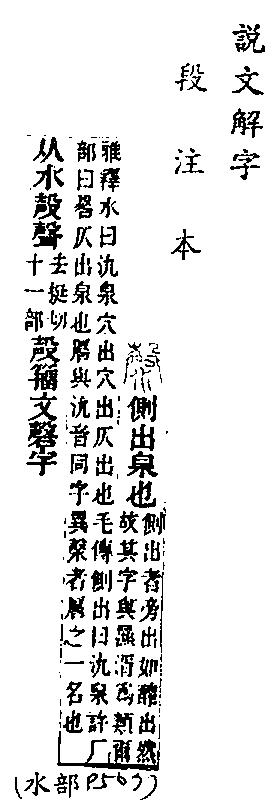 說文解字
段注本
漀 側出泉也 側出者旁出如釃出然
故其字與湑爲類爾
雅釋水曰氿泉穴出穴出仄出也毛傳側出曰氿泉許厂
部曰厬仄出泉也厬與氿音同字異漀者厬之一名也
从水殸聲 去挺切
十一部 殸籒文磬字
(水部P563)